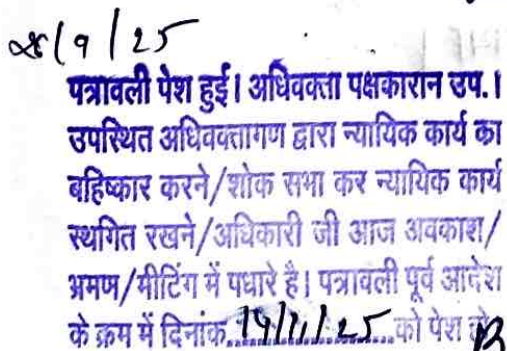 /9/25
पत्रावली पेश हुई। अधिवक्ता पक्षकारान उप.।
उपस्थित अधिवक्तागण द्वारा न्यायिक कार्य का
बहिष्कार करने/शोक सभा कर न्यायिक कार्य
स्थगित रखने/अधिकारी जी आज अवकाश/
भ्रमण/मीटिंग में पधारे है। पत्रावली पूर्व आदेश
के क्रम में दिनांक..../25...को पेश हो